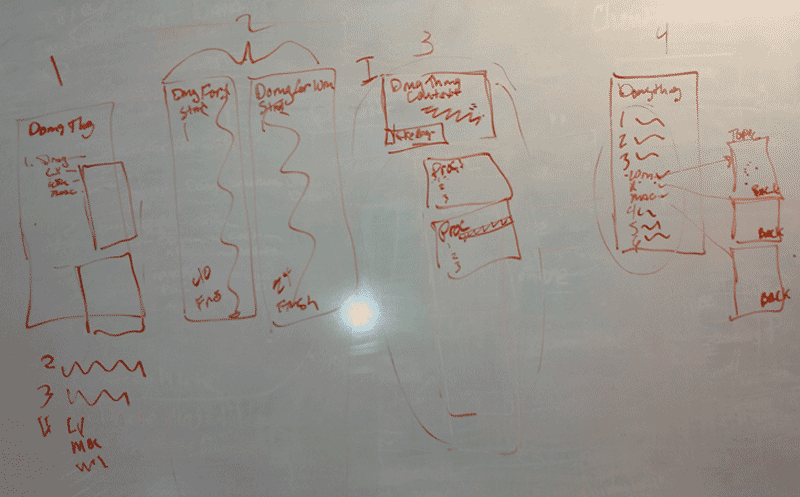 1
Doing Thg
1. Doing
LX
WIN
Mac
2
3
4 LX
Mac
WI
2
Doing For LX
Start
40
Fns
Doing for Win
Start
24
Finish
3
I
Doing Thing
Context
Proc 1
2
3
Proc
1
2
3
4
Doing thing
1
2
3
Win
LX
Mac
4
5
6
Topic
Back
Back
Back